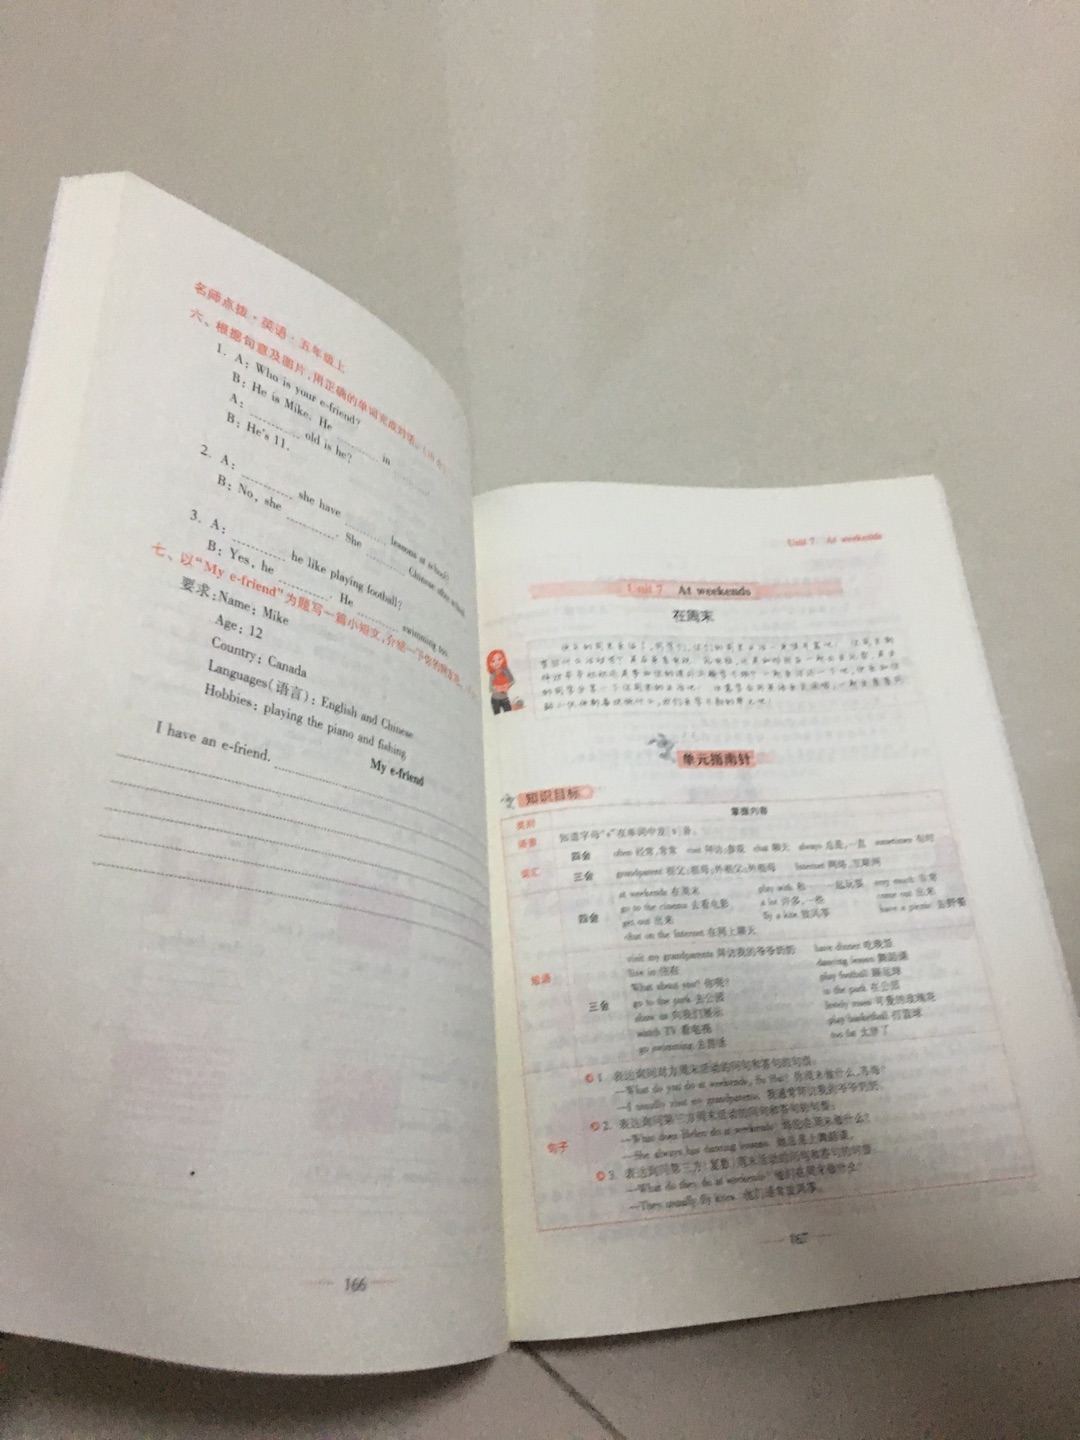 名师点拨·英语·五年级上
六、根据句意及图片,用正确的单词完成对话。
1. A: Who is your e-friend?
B: He is Mike. He ............ in ............
A: ............ old is he?
B: He's 11.
2. A: ............ she have ............ lessons at school?
B: No, she ............. She ............ Chinese after school.
3. A: ............ he like playing football?
B: Yes, he ............. He ............ swimming too.
七、以“My e-friend”为题写一篇小短文,介绍一下你的网友吧。
要求:Name: Mike
Age: 12
Country: Canada
Languages(语言): English and Chinese
Hobbies: playing the piano and fishing
My e-friend
I have an e-friend.
166
Unit 7 At weekends
Unit 7 At weekends
在周末
单元指南针
知识目标
类别 掌握内容
语音
词汇 四会 often 经常,常常 visit 拜访;参观 chat 聊天 always 总是,一直 sometimes 有时
三会 grandparent 祖父;祖母;外祖父;外祖母 Internet 网络,互联网
短语 四会 at weekends 在周末 play with 和……一起玩耍 very much 非常
go to the cinema 去看电影 a lot 许多,一些 come out 出来
get out 出来 fly a kite 放风筝 have a picnic 去野餐
chat on the Internet 在网上聊天
三会 visit my grandparents 拜访我的爷爷奶奶 have dinner 吃晚饭
live in 住在 dancing lesson 舞蹈课
What about you? 你呢? play football 踢足球
go to the park 去公园 in the park 在公园
show us 向我们展示 lovely roses 可爱的玫瑰花
watch TV 看电视 play basketball 打篮球
go swimming 去游泳 too fat 太胖了
句子 1. 表达询问对方周末活动的问句和答句的句型:
—What do you do at weekends, Su Hai? 你周末做什么,苏海?
—I usually visit my grandparents. 我通常拜访我的爷爷奶奶。
2. 表达询问第三方周末活动的问句和答句的句型:
—What does Helen do at weekends? 海伦在周末做什么?
—She always has dancing lessons. 她总是上舞蹈课。
3. 表达询问第三方(复数)周末活动的问句和答句的句型:
—What do they do at weekends? 他们在周末做什么?
—They usually fly kites. 他们通常放风筝。
167